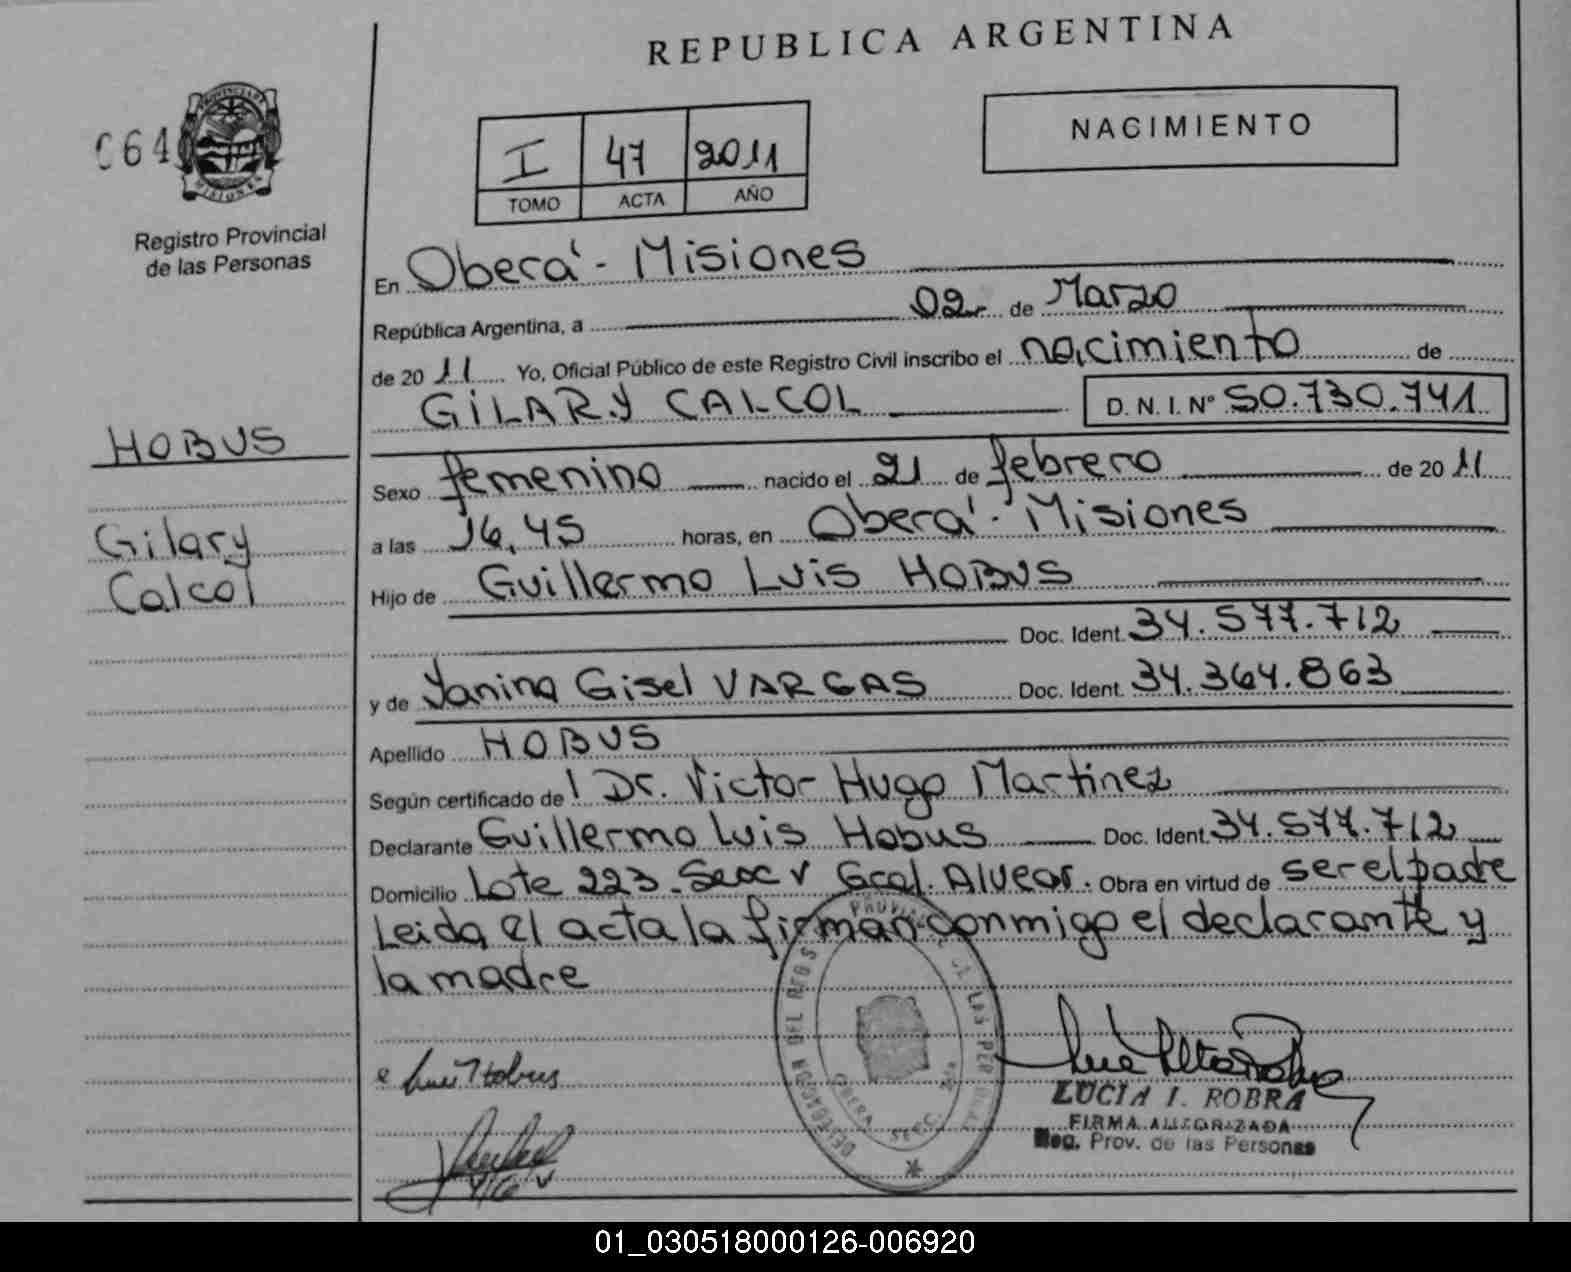 REPUBLICA ARGENTINA
NACIMIENTO
064
PROVINCIA DE
MISIONES
Registro Provincial
de las Personas
I 47 2011
TOMO ACTA AÑO
En Oberá - Misiones
República Argentina, a 02 de Marzo
de 20 11 Yo, Oficial Público de este Registro Civil inscribo el nacimiento de
GILARY CALCOL D. N. I. Nº 50.730.741
HOBUS
Sexo femenino nacido el 21 de febrero de 20 11
Gilary
Calcol
a las 16,45 horas, en Oberá - Misiones
Hijo de Guillermo Luis HOBUS
Doc. Ident. 34.577.712
y de Yanina Gisel VARGAS Doc. Ident. 34.364.863
Apellido HOBUS
Según certificado de l Dr. Victor Hugo Martinez
Declarante Guillermo Luis Hobus Doc. Ident. 34.577.712
Domicilio Lote 223 - Secc V Gral. Alvear. Obra en virtud de ser el padre
Leida el acta la firman conmigo el declarante y
la madre
Luis Hobus
DELEGACION DEL REG
OBERA SECC.
LUCIA I. ROBRA
FIRMA AUTORIZADA
Reg. Prov. de las Personas
01_030518000126-006920